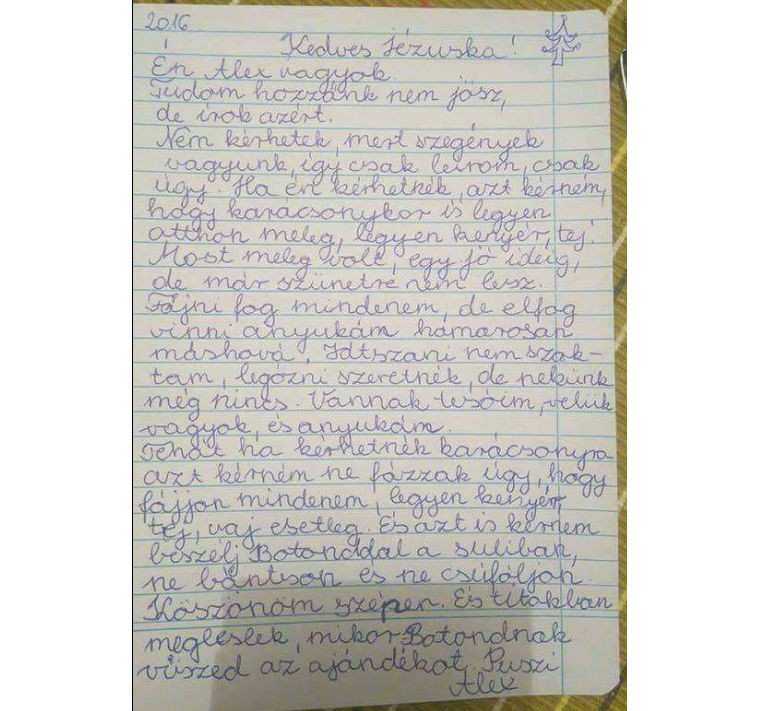 2016.
Kedves Jézuska!
Én Alex vagyok.
Tudom hozzánk nem jösz,
de irok azért.
Nem kérhetek, mert szegények
vagyunk, így csak leirom, csak
úgy. Ha én kérhetnék, azt kérném,
hogy karácsonykor is legyen
otthon meleg, legyen kenyér, tej.
Most meleg volt, egy jó ideig,
de már szünetre nem lesz.
Fájni fog mindenem, de elfog
vinni anyukám hamarosan
máshová. Játszani nem szok-
tam, legózni szeretnék, de nekünk
még nincs. Vannak tesóim, velük
vagyok, és anyukám.
Tehát ha kérhetnék karácsonyra
azt kérném ne fázzak úgy, hogy
fájjon mindenem, legyen kenyér,
tej, vaj esetleg. És azt is kérném
beszélj Botonddal a suliban,
ne bántson és ne csúfoljon.
Köszönöm szépen. És titokban
megleslek, mikor Botondnak
viszed az ajándékot. Puszi
Alex